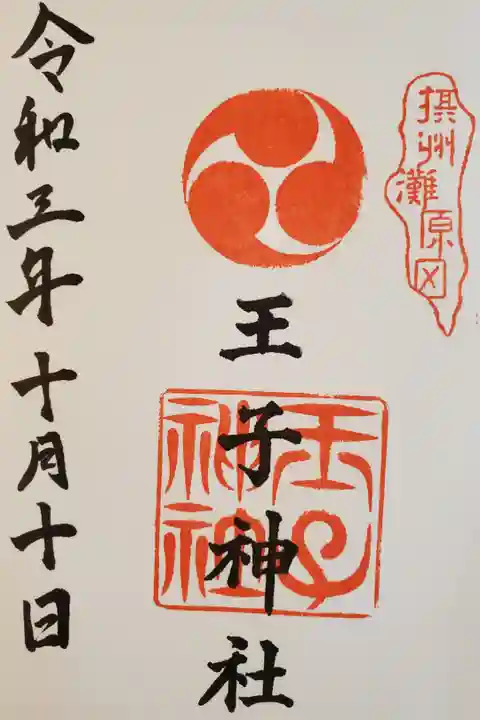 摂州灘原田
王子神社
王子神社
令和三年十月十日